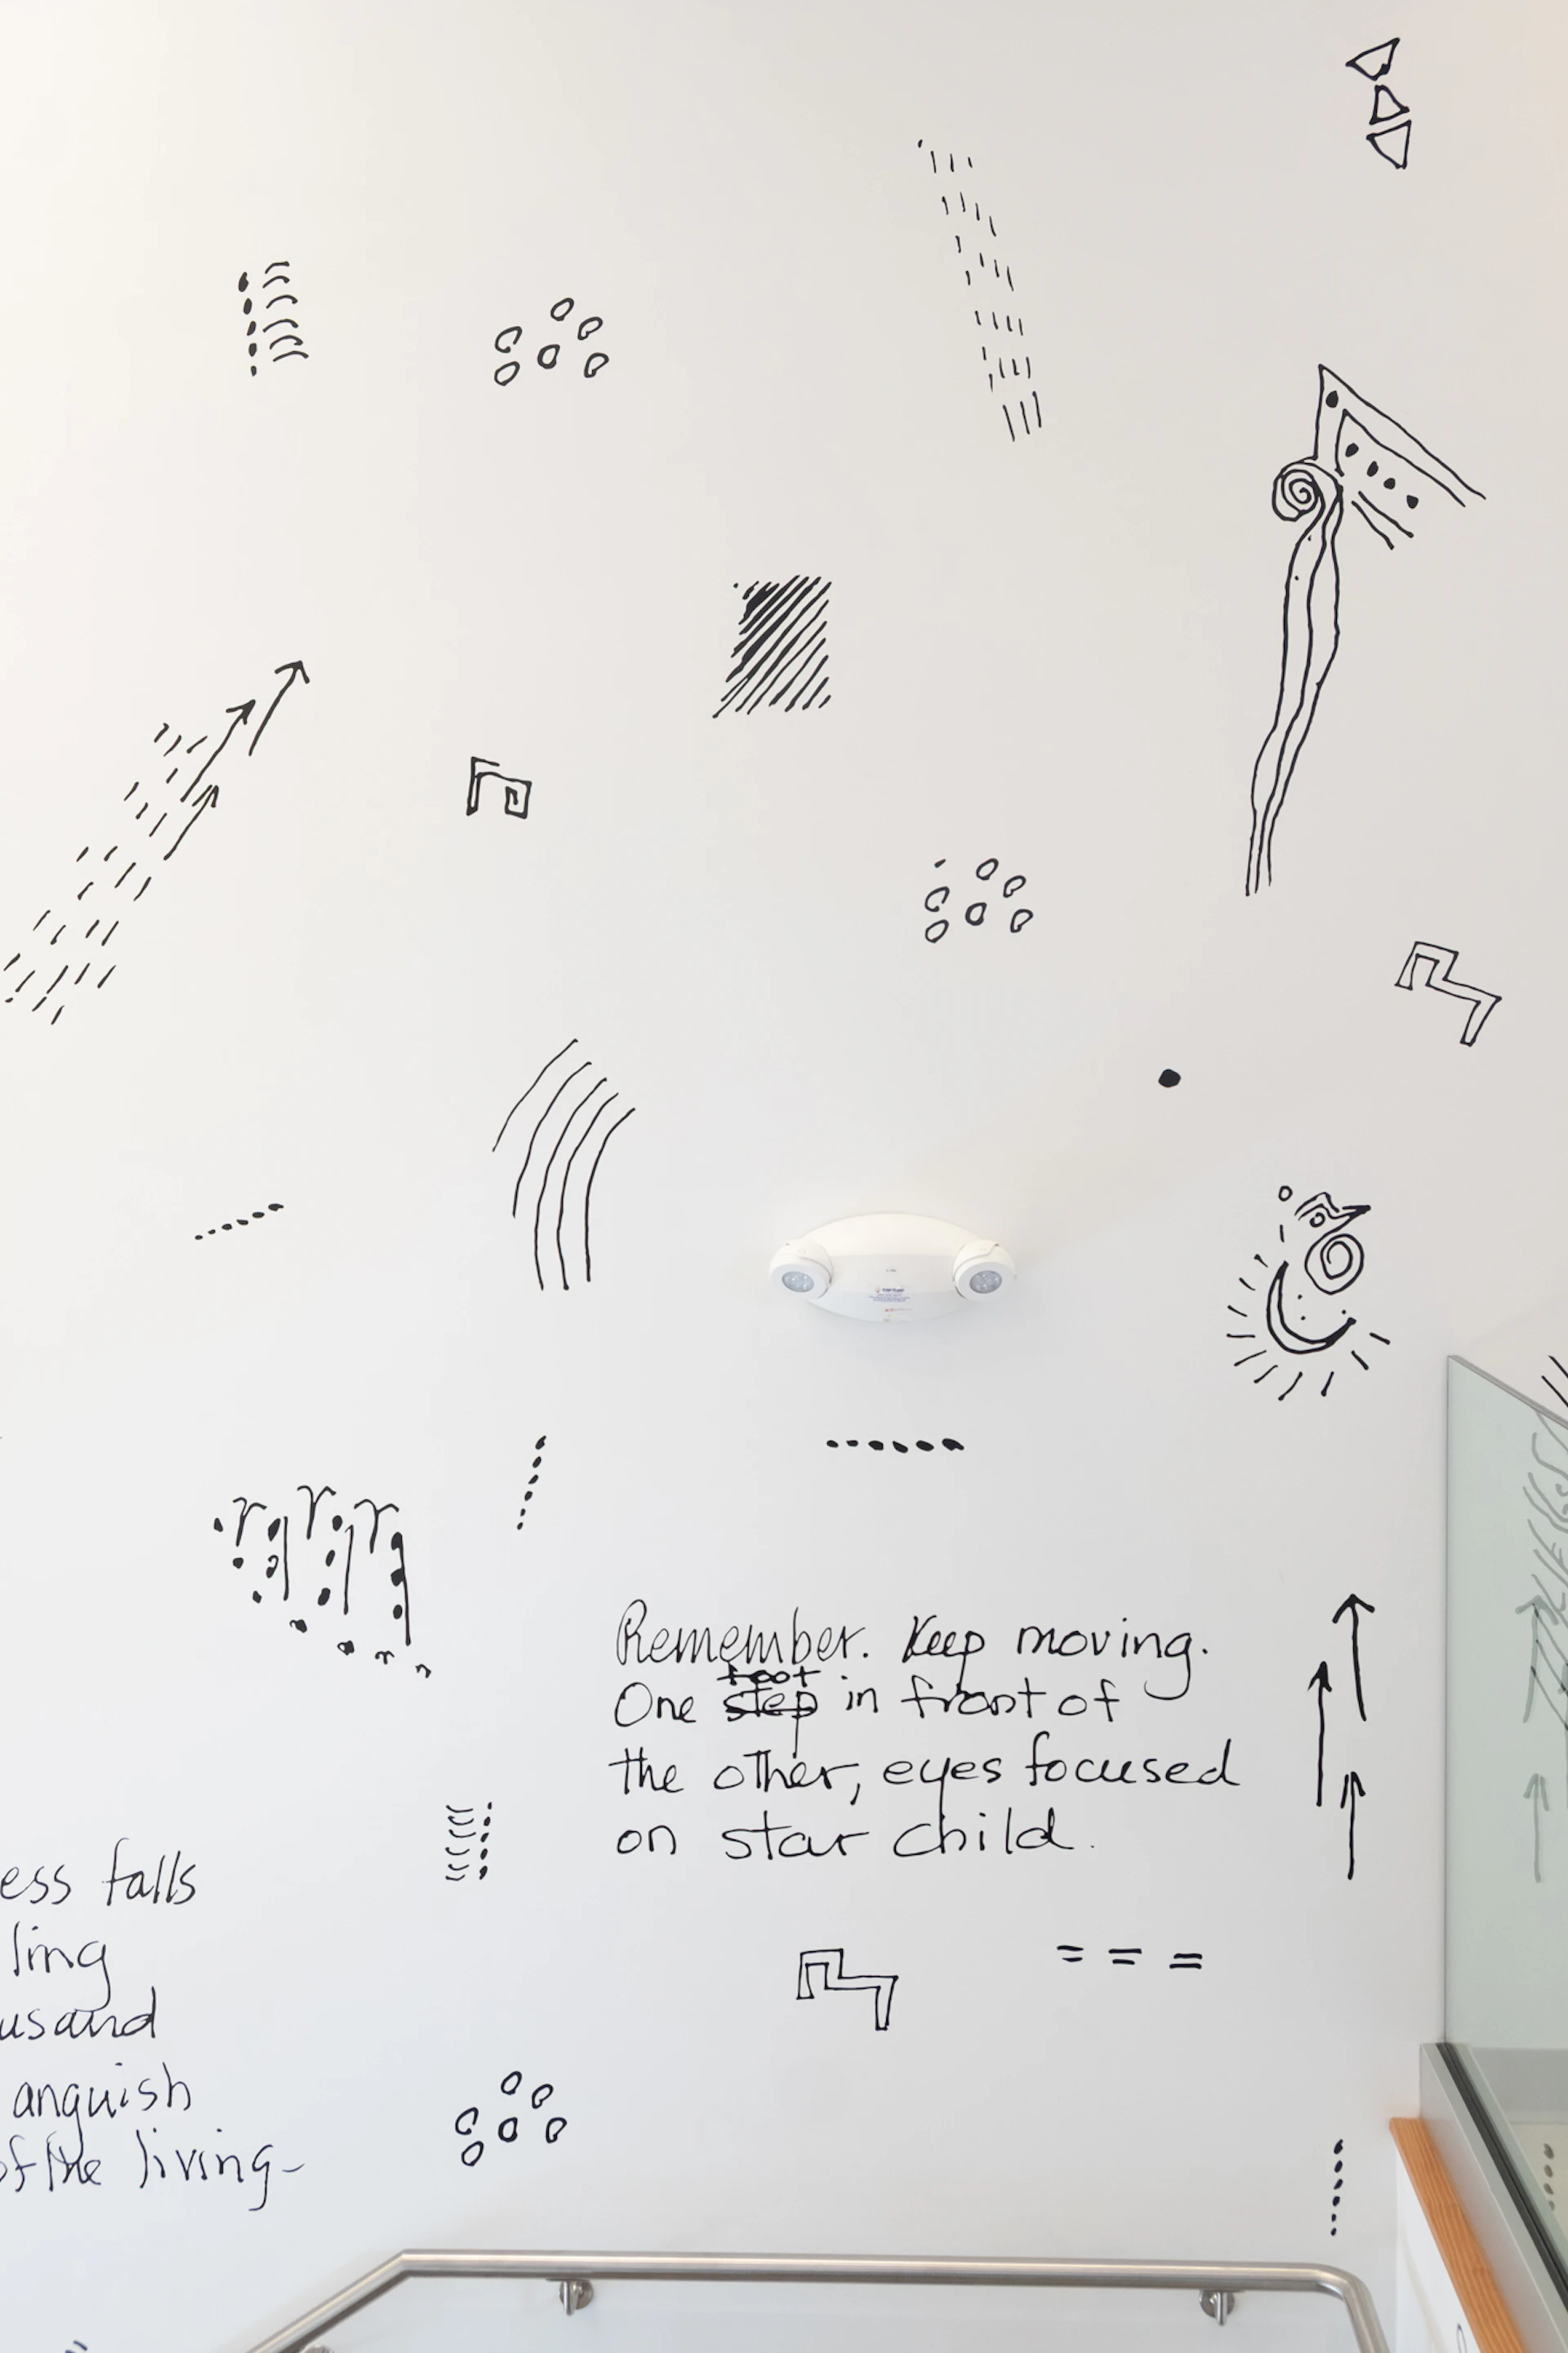 Remember. Keep moving.
foot
One step in front of
the other, eyes focused
on star child.
ess falls
ling
usand
anguish
of the living-